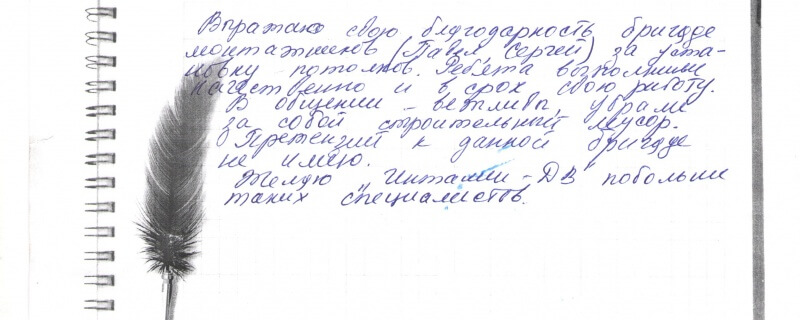 Выражаю свою благодарность бригаде
монтажников (Павел, Сергей) за уста-
новку потолков. Ребята выполнили
качественно и в срок свою работу.
В общении – вежливы, убрали
за собой строительный мусор.
Претензий к данной бригаде
не имею.
Желаю „Интали-ДВ" побольше
таких специалистов.